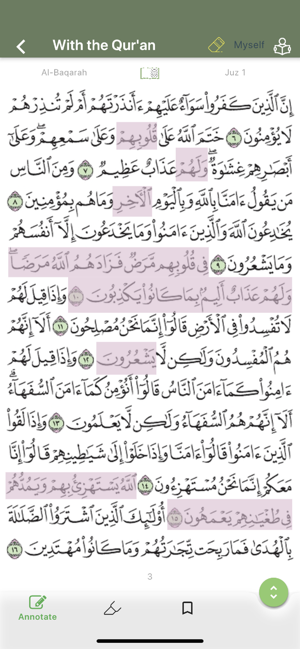 With the Qur'an
Myself
Al-Baqarah
Juz 1
إِنَّ ٱلَّذِينَ كَفَرُوا۟ سَوَآءٌ عَلَيْهِمْ ءَأَنذَرْتَهُمْ أَمْ لَمْ تُنذِرْهُمْ
لَا يُؤْمِنُونَ ٦ خَتَمَ ٱللَّهُ عَلَىٰ قُلُوبِهِمْ وَعَلَىٰ سَمْعِهِمْ ۖ وَعَلَىٰٓ
أَبْصَـٰرِهِمْ غِشَـٰوَةٌ ۖ وَلَهُمْ عَذَابٌ عَظِيمٌ ٧ وَمِنَ ٱلنَّاسِ
مَن يَقُولُ ءَامَنَّا بِٱللَّهِ وَبِٱلْيَوْمِ ٱلْـَٔاخِرِ وَمَا هُم بِمُؤْمِنِينَ ٨
يُخَـٰدِعُونَ ٱللَّهَ وَٱلَّذِينَ ءَامَنُوا۟ وَمَا يَخْدَعُونَ إِلَّآ أَنفُسَهُمْ
وَمَا يَشْعُرُونَ ٩ فِى قُلُوبِهِم مَّرَضٌ فَزَادَهُمُ ٱللَّهُ مَرَضًا ۖ
وَلَهُمْ عَذَابٌ أَلِيمٌۢ بِمَا كَانُوا۟ يَكْذِبُونَ ١٠ وَإِذَا قِيلَ لَهُمْ
لَا تُفْسِدُوا۟ فِى ٱلْأَرْضِ قَالُوٓا۟ إِنَّمَا نَحْنُ مُصْلِحُونَ ١١ أَلَآ إِنَّهُمْ
هُمُ ٱلْمُفْسِدُونَ وَلَـٰكِن لَّا يَشْعُرُونَ ١٢ وَإِذَا قِيلَ لَهُمْ
ءَامِنُوا۟ كَمَآ ءَامَنَ ٱلنَّاسُ قَالُوٓا۟ أَنُؤْمِنُ كَمَآ ءَامَنَ ٱلسُّفَهَآءُ ۗ
أَلَآ إِنَّهُمْ هُمُ ٱلسُّفَهَآءُ وَلَـٰكِن لَّا يَعْلَمُونَ ١٣ وَإِذَا لَقُوا۟
ٱلَّذِينَ ءَامَنُوا۟ قَالُوٓا۟ ءَامَنَّا وَإِذَا خَلَوْا۟ إِلَىٰ شَيَـٰطِينِهِمْ قَالُوٓا۟ إِنَّا
مَعَكُمْ إِنَّمَا نَحْنُ مُسْتَهْزِءُونَ ١٤ ٱللَّهُ يَسْتَهْزِئُ بِهِمْ وَيَمُدُّهُمْ
فِى طُغْيَـٰنِهِمْ يَعْمَهُونَ ١٥ أُو۟لَـٰٓئِكَ ٱلَّذِينَ ٱشْتَرَوُا۟ ٱلضَّلَـٰلَةَ
بِٱلْهُدَىٰ فَمَا رَبِحَت تِّجَـٰرَتُهُمْ وَمَا كَانُوا۟ مُهْتَدِينَ ١٦
3
Annotate